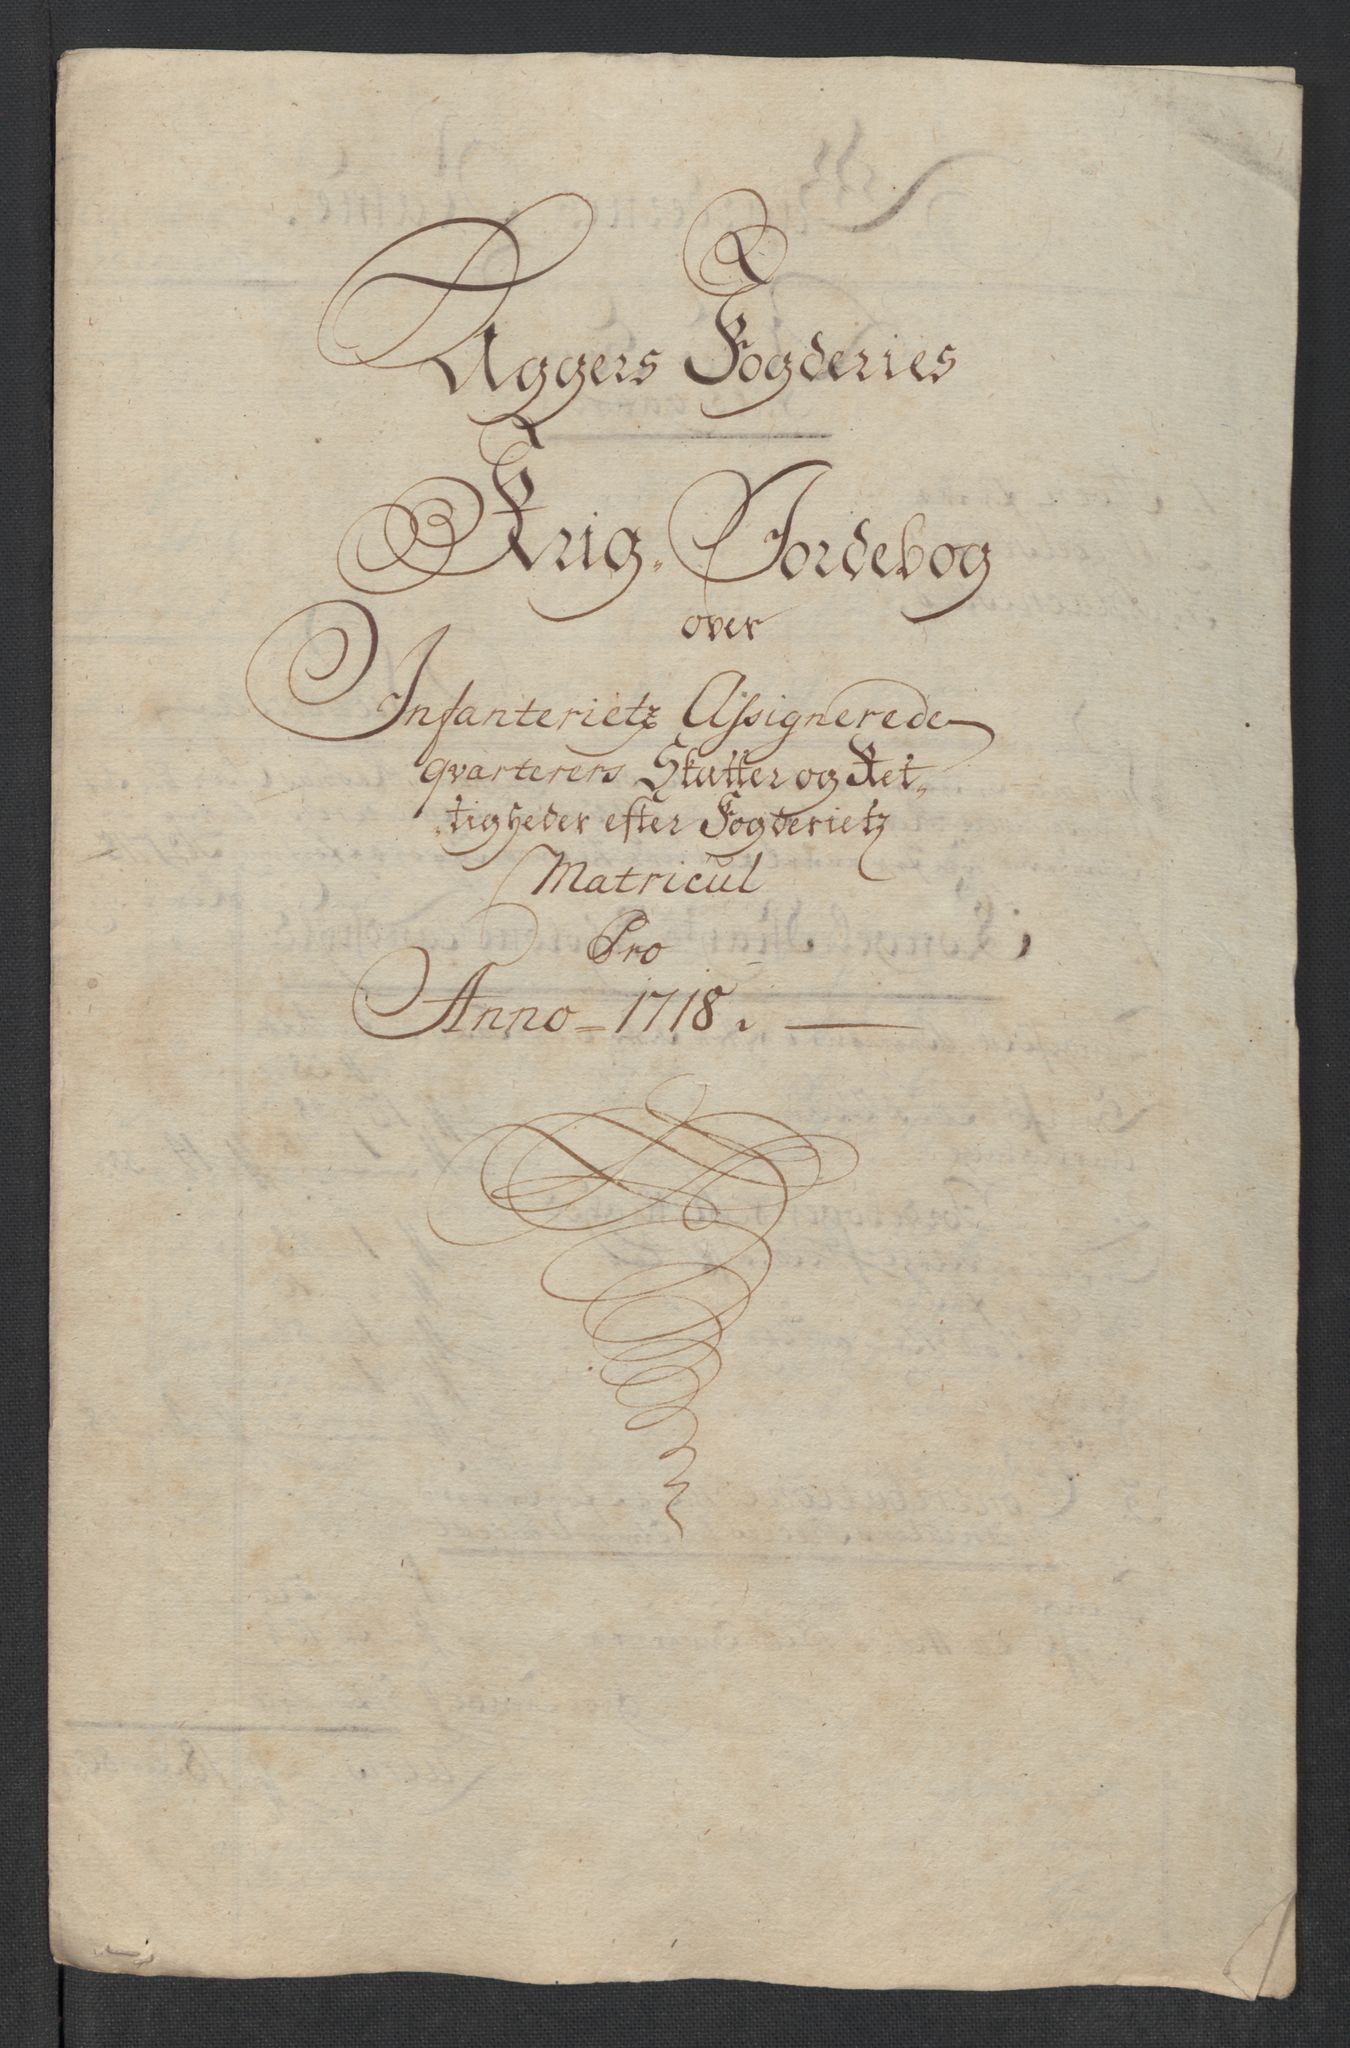 Aggers Fogderies
Krig. Jordebog
over
Infanterietz Assignerede
qvarterers Skatter og Ret-
-tigheder efter Fogderietz
Matricul
Pro
Anno - 1718.